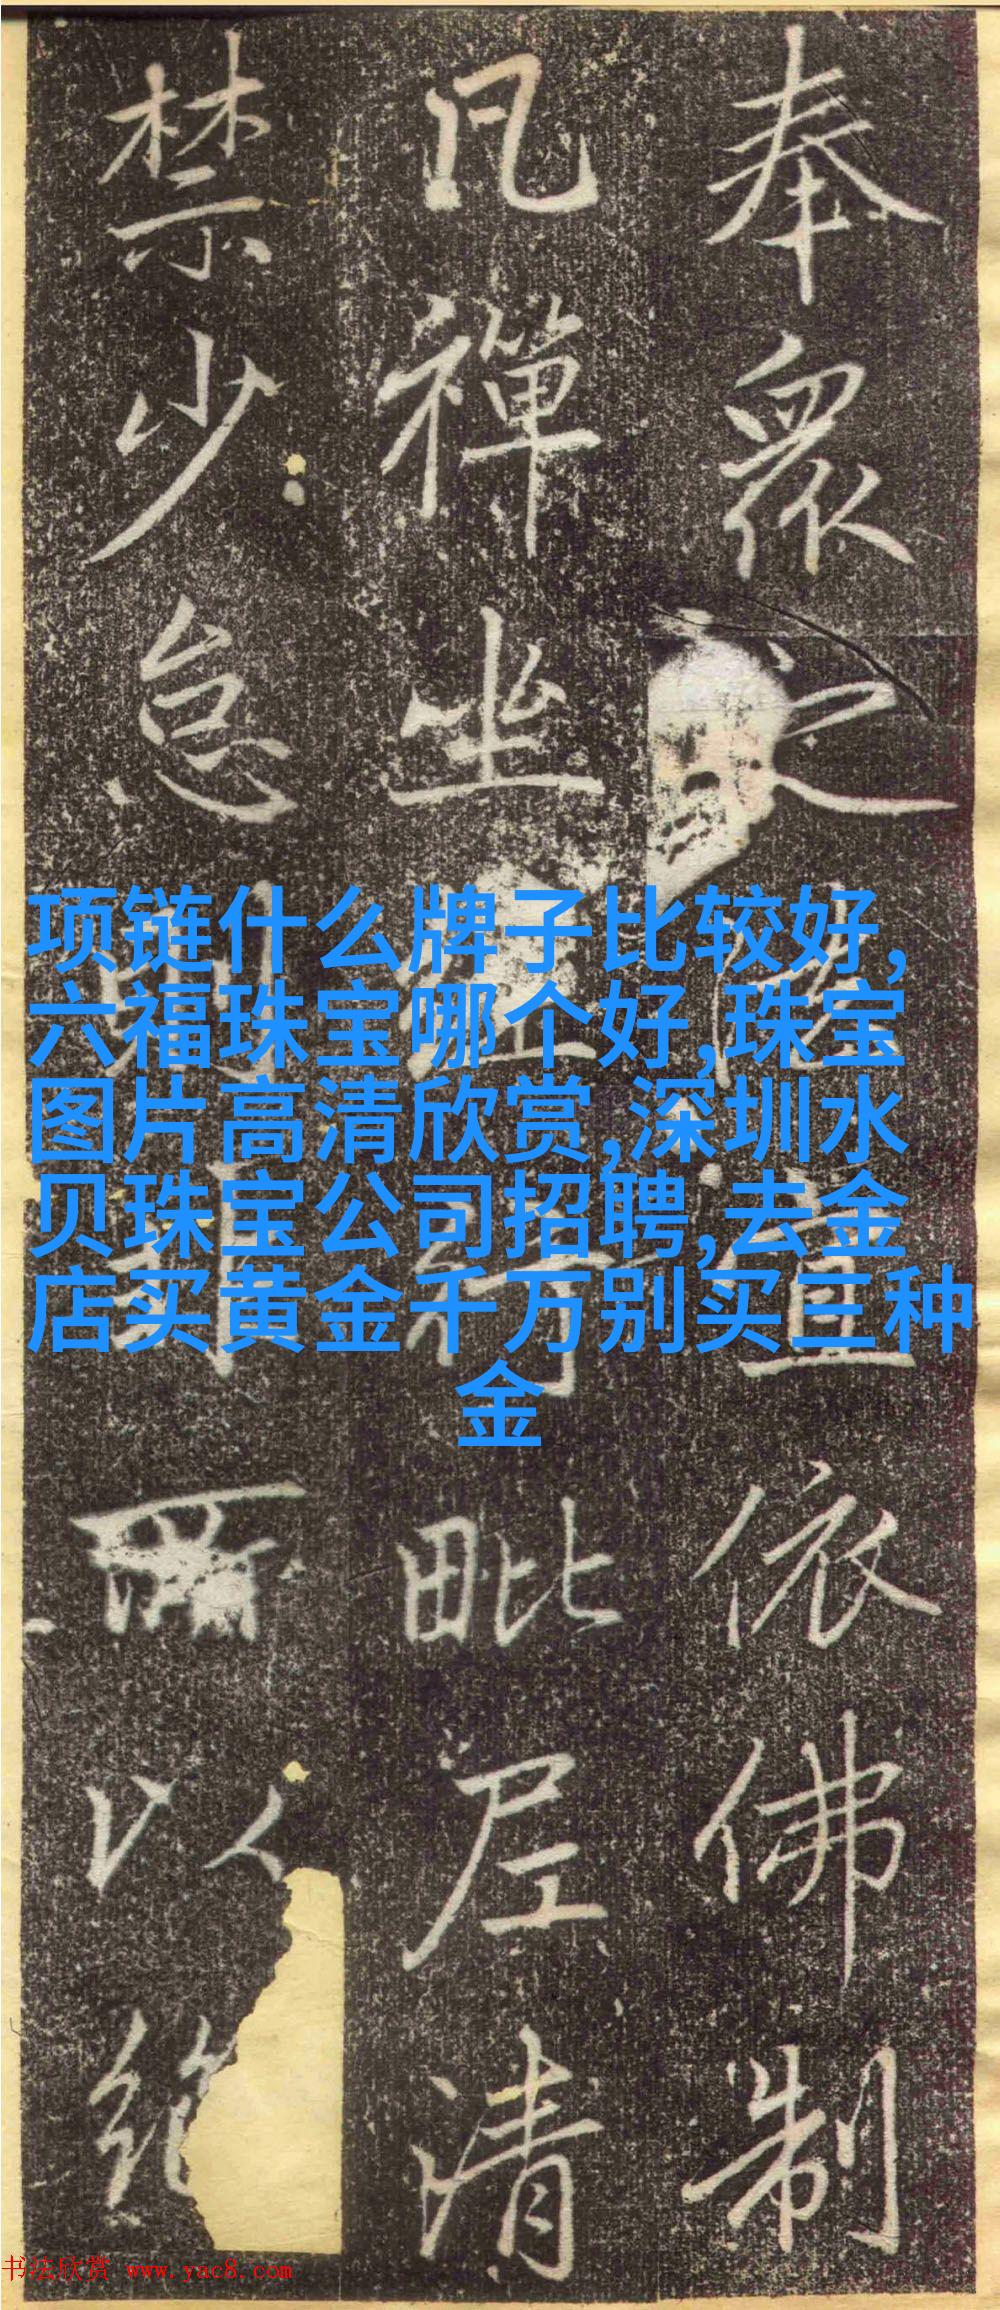 奉眾宜依佛制
凡禪坐經行毗尼清
禁少怠則以絕
项链什么牌子比较好,
六福珠宝哪个好,珠宝
图片高清欣赏,深圳水
贝珠宝公司招聘,去金
店买黄金千万别买三种
金
书法欣赏 www.yac8.com